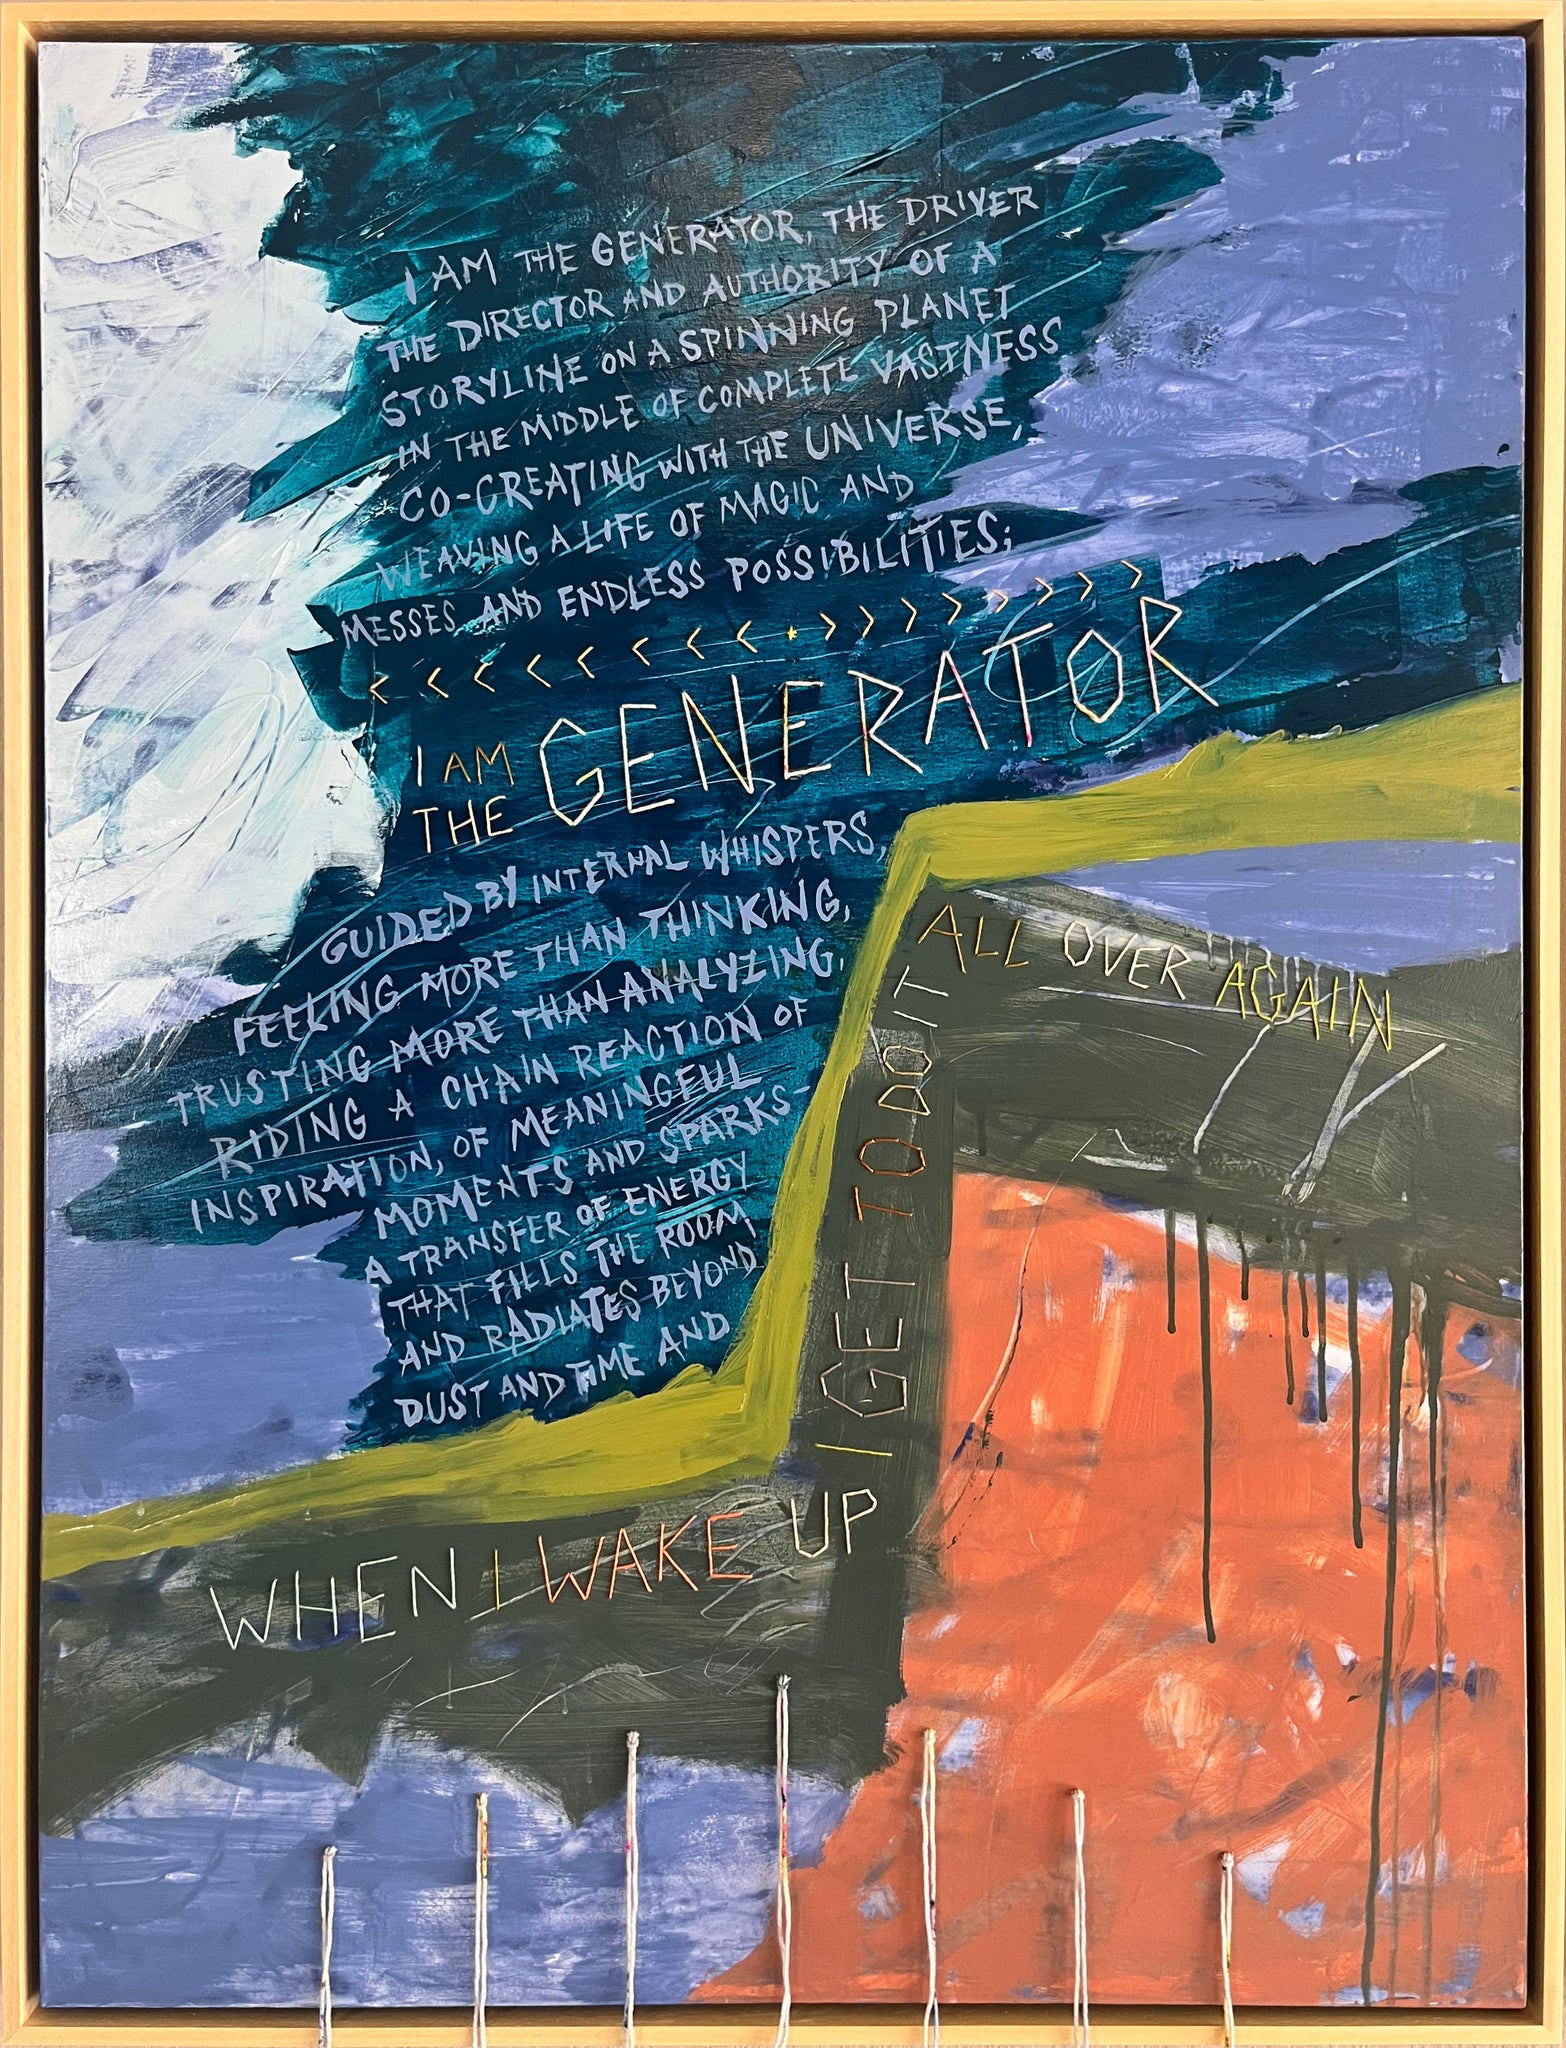 I AM THE GENERATOR, THE DRIVER
THE DIRECTOR AND AUTHORITY OF A
STORYLINE ON A SPINNING PLANET
IN THE MIDDLE OF COMPLETE VASTNESS
CO-CREATING WITH THE UNIVERSE,
WEAVING A LIFE OF MAGIC AND
MESSES AND ENDLESS POSSIBILITIES;
< < < < < < < < · > > > > > > > > >
I AM
THE GENERATOR
GUIDED BY INTERNAL WHISPERS,
FEELING MORE THAN THINKING,
TRUSTING MORE THAN ANALYZING,
RIDING A CHAIN REACTION OF
INSPIRATION, OF MEANINGFUL
MOMENTS AND SPARKS-
A TRANSFER OF ENERGY
THAT FILLS THE ROOM
AND RADIATES BEYOND
DUST AND TIME AND
WHEN I WAKE UP
I GET TO DO IT
ALL OVER AGAIN